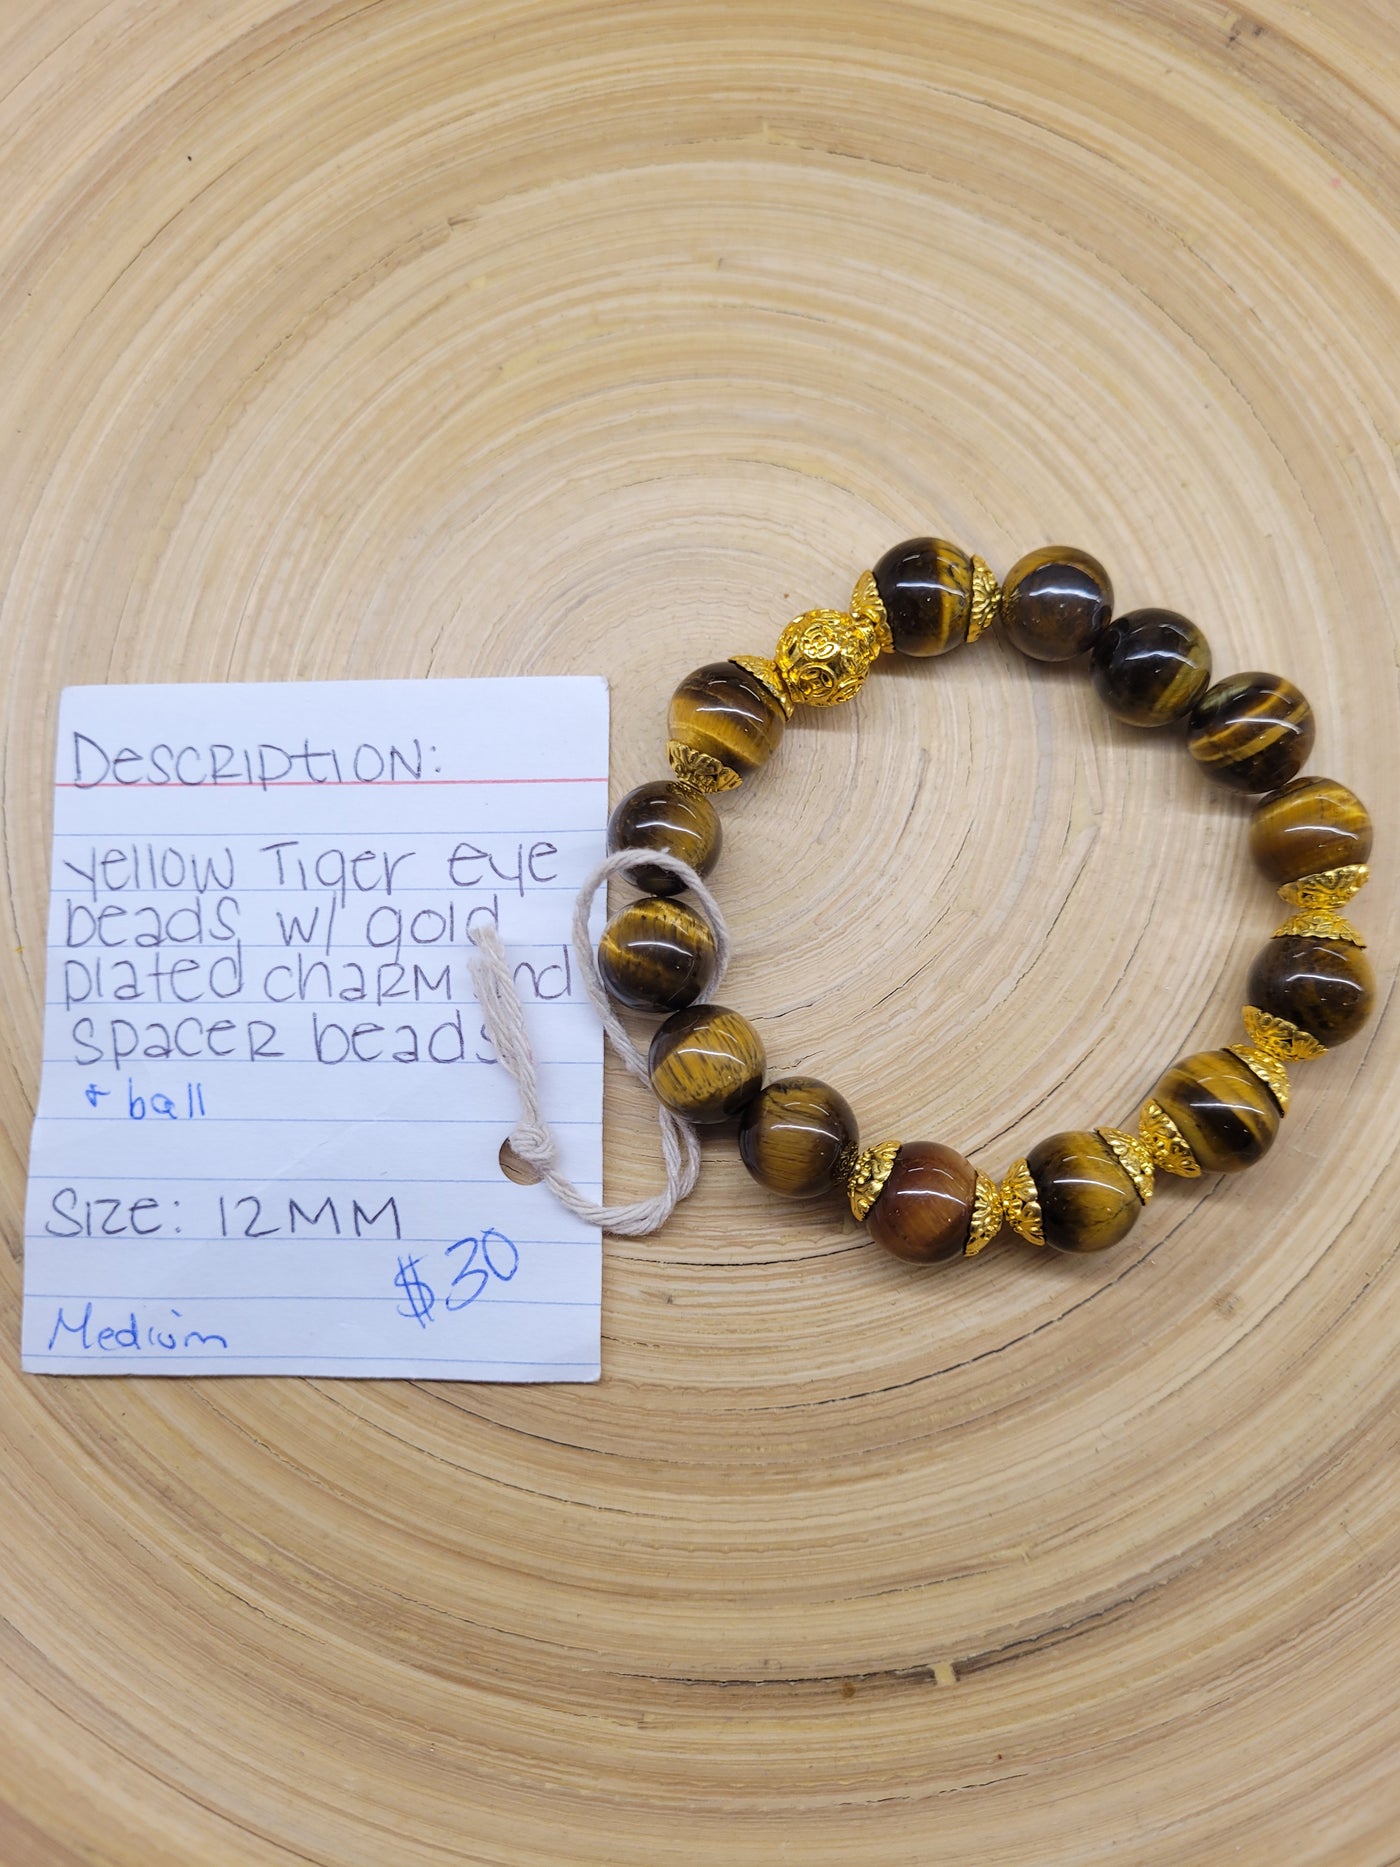 Description:
yellow Tiger eye
beads w/ gold
plated charm and
spacer beads
+ ball
Size: 12MM
$30
Medium